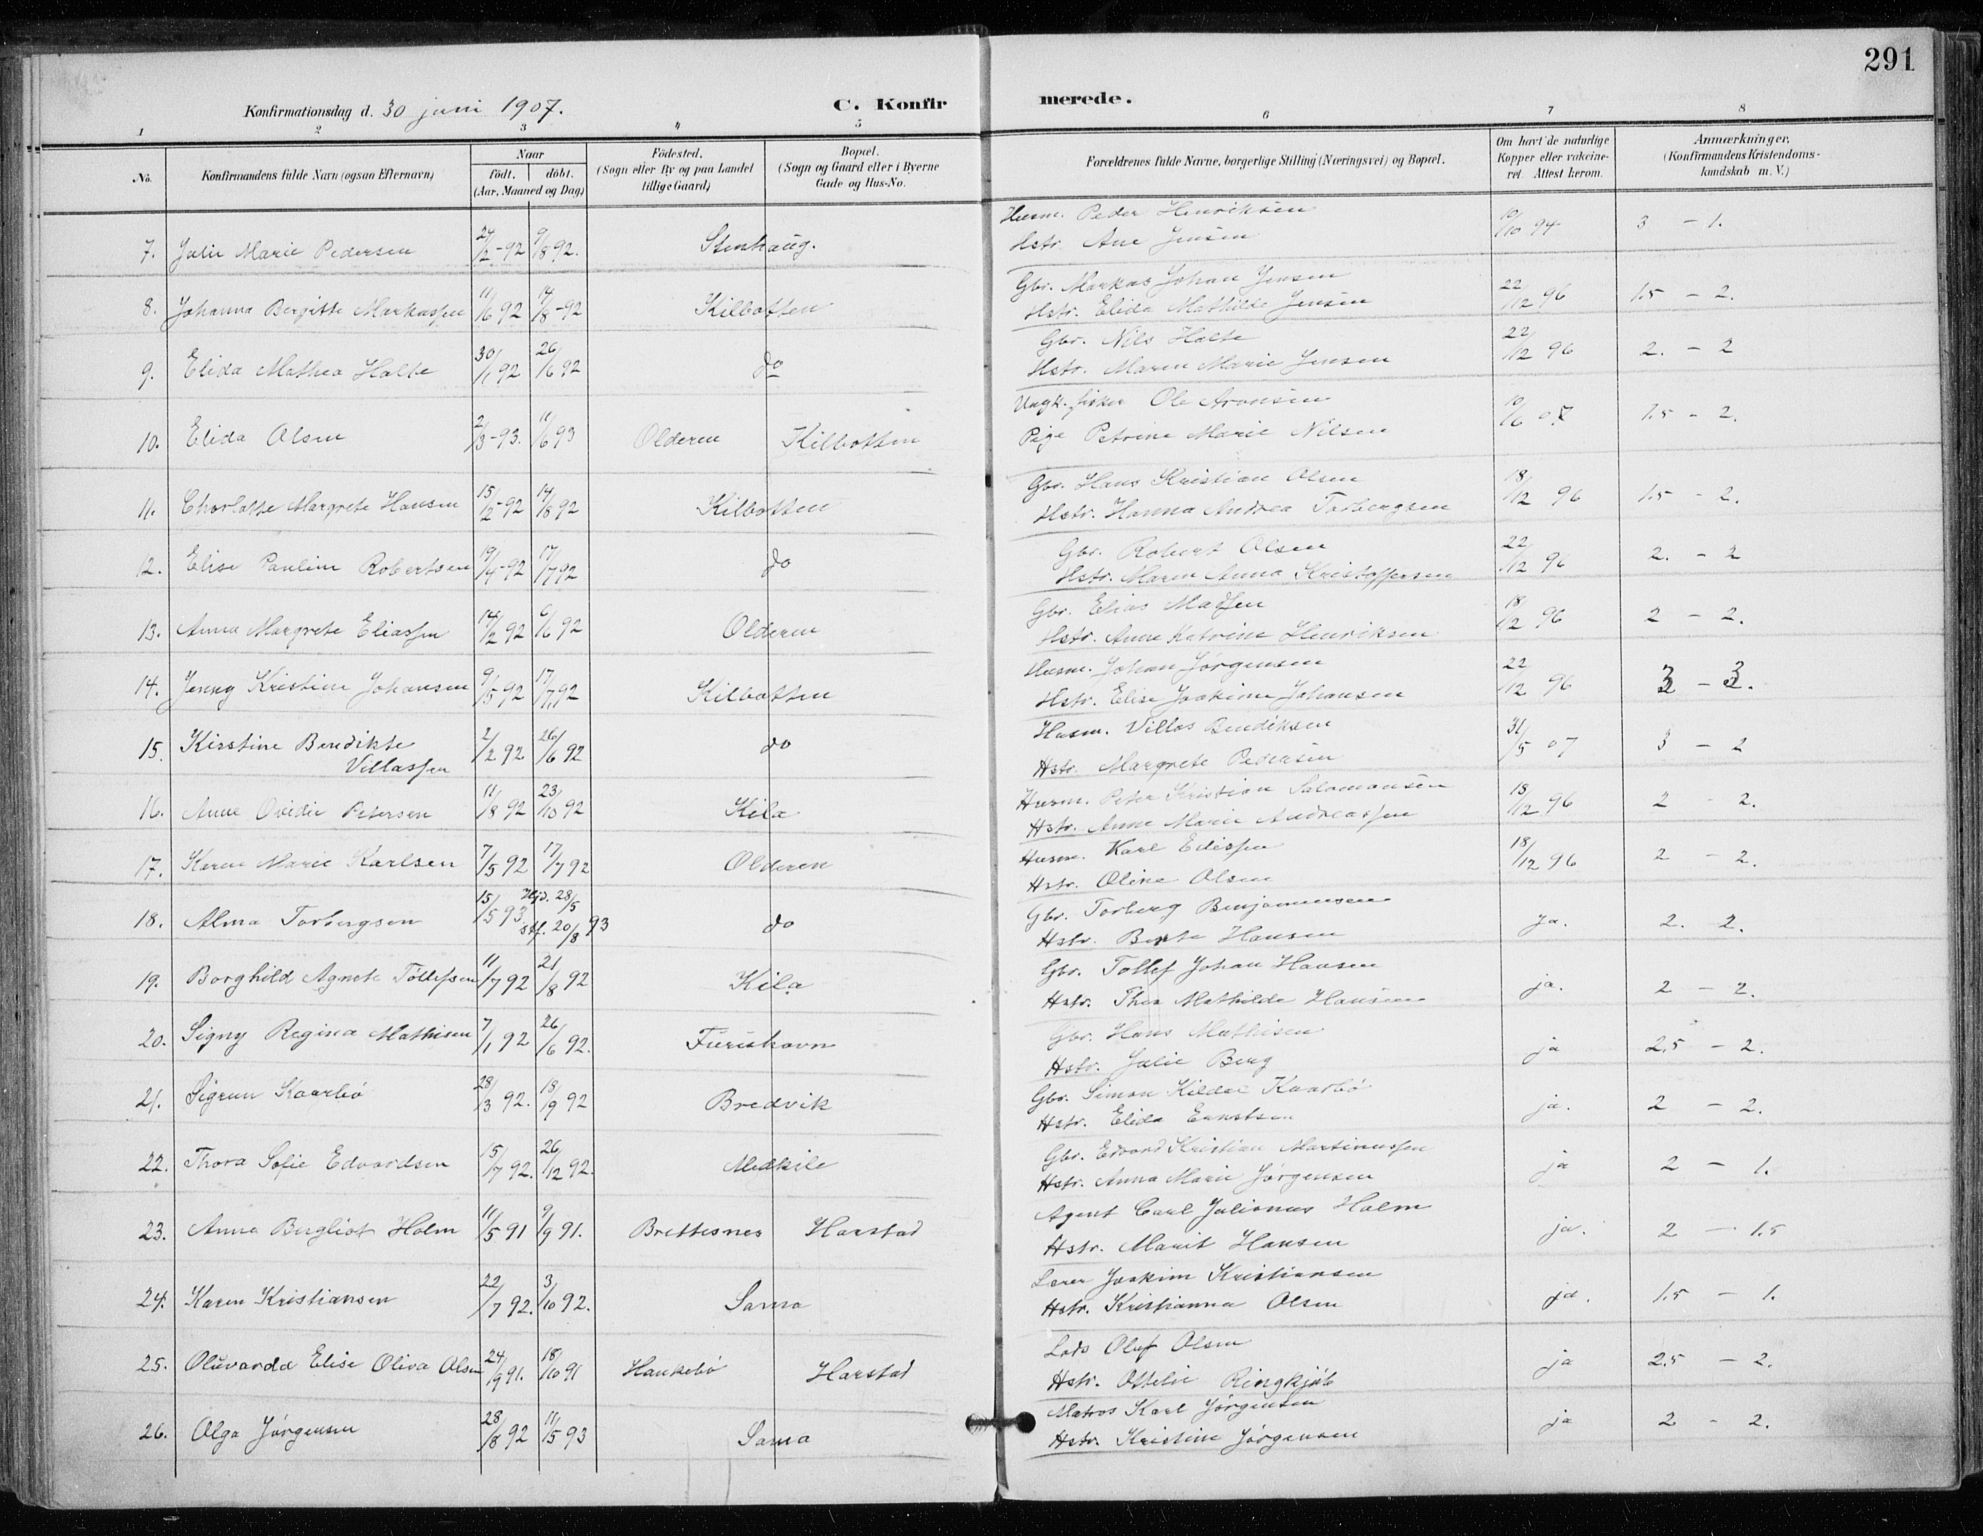 291
Konfirmationsdag d. 30 juni 1907. C. Konfir merede.
1 2 3 4 5 6 7 8
No. Konfirmandens fulde Navn (ogsaa Efternavn) Naar Födested. Bopæl. Forældrenes fulde Navne, borgerlige Stilling (Næringsvei) og Bopæl. Om havt de naturlige Anmærkninger,
födt. döbt. (Sogn eller By og paa Landet (Sogn og Gaard eller i Byerne Kopper eller vakcine- (Konfirmandens Kristendoms-
(Aar, Maaned og Dag) tillige Gaard) Gade og Hus-No. ret. Attest herom. kundskab m. V.)
Husm. Peder Henriksen
7. Julie Marie Pedersen 24/2-92 9/8 92. Stenhaug. Hstr. Ane Jensen 10/10 94 3 - 1.
Gbr. Markus Johan Jensen
8. Johanna Bergitte Markussen 11/6 92 14/8-92 Kilbotten Hstr. Elida Mathilde Jensen 22/12 96 1.5 - 2.
Gbr. Nils Halte
9. Elida Mathea Halte 30/1 92 26/6 92 do Hstr. Maren Marie Jensen 22/12 96 2. - 2
Ungk. fisker Ole Aronsen
10. Elida Olsen 2/3-93. 11/6 93 Olderen Kilbotten Pige Petrine Marie Nilsen 10/6 07 1.5 - 2.
Gbr. Hans Kristian Olsen
11. Charlotte Margrete Hansen 15/2-92 14/8 92 Kilbotten Hstr. Hanna Andrea Torbergsen 18/12 96 1.5 - 2.
Gbr. Robert Olsen
12. Elise Pauline Robertsen 19/4-92 17/7 92 do Hstr. Maren Anna Kristoffersen 22/12 96 2. - 2
Gbr. Elias Madsen
13. Anna Margrete Eliassen 14/2 92 6/6 92 Olderen Hstr. Anne Katrine Henriksen 18/12 96 2 - 2.
Husm. Johan Jørgensen
14. Jenny Kristine Johansen 9/5 92 17/7 92 Kilbotten Hstr. Elise Joakime Johansen 22/12 96 3 - 3.
Husm. Villas Bendiksen
15. Kirstine Bendikte 2/2 92 26/6 92 do 31/5 07 3 - 2
Villassen Hstr. Margrete Pedersen
Husm. Peter Kristian Salamonsen
16. Anne Ovidie Petersen 11/8 92 23/10 92 Kila Hstr. Anne Marie Andreassen 18/12 96 2 - 2.
Husm. Karl Edissen
17. Karen Marie Karlsen 7/5 92 17/7 92 Olderen Hstr. Oline Olsen 18/12 96 2 - 2.
Hjd. 28/5
Gbr. Torberg Benjaminsen
18. Alma Torbergsen 15/5 93 stf. 20/8 93 do Hstr. Berte Hansen Ja. 2. 2.
Gbr. Tollef Johan Hansen
19. Borghild Agnete Tollefsen 11/7 92 21/8 92 Kila Hstr. Thea Mathilde Hansen ja. 2 - 2.
Gbr. Hans Mathisen
20. Signy Regina Mathisen 7/1 92 26/6 92. Furishavn Hstr. Julie Berg ja 2.5 - 2.
Gbr. Simon Kildal Kaarbø
21. Sigrun Kaarbø 28/3 92. 18/9 92 Bredvik Hstr. Elida Ernstsen ja. 2 - 2.
Gbr. Edvard Kristian Martinussen
22. Thora Sofie Edvardsen 15/7 92. 26/12 92. Medkile Hstr. Anna Marie Jørgensen ja 2 - 1.
Agent Carl Julianus Holm
23. Anna Bergliot Holm 11/5 91 9/9 91. Brettesnes Harstad Hstr. Marit Hansen ja. 2 - 1.5
Lærer Joakim Kristiansen
24. Karen Kristiansen 22/7 92. 3/10 92. Sama Hstr. Kristianna Olsen ja. 1.5 - 1.
Lods Oluf Olsen
25. Oluvarda Elise Oliva Olsen 24/9 91. 18/10 91 Haukebø Harstad Hstr. Ottilie Ringkjøb ja 2.5 - 2.
Matros Karl Jørgensen
26. Olga Jørgensen 28/8 92 11/5 93 Sama Hstr. Kristine Jørgensen ja 2 - 2.